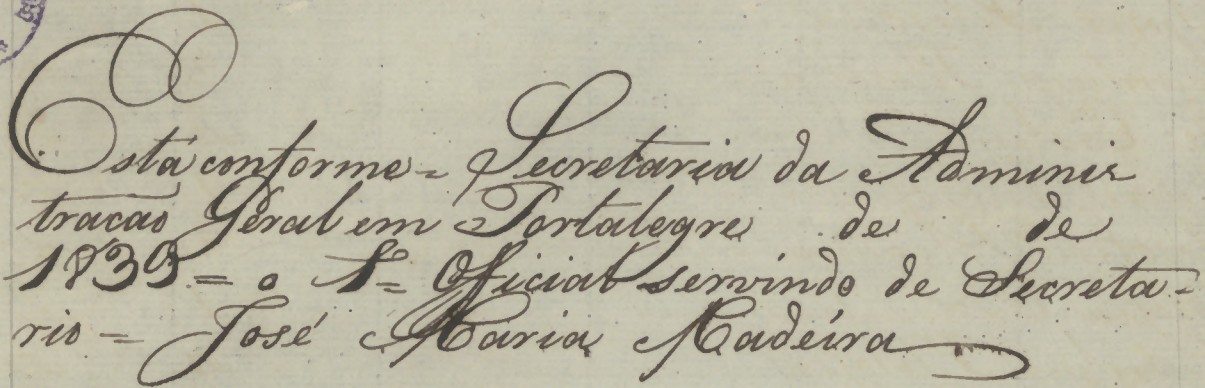 Está conforme = Secretaria da Adminis
tracão Geral em Portalegre de de
1839 = o 1º Oficial servindo de Secreta-
rio = José Maria Madeira